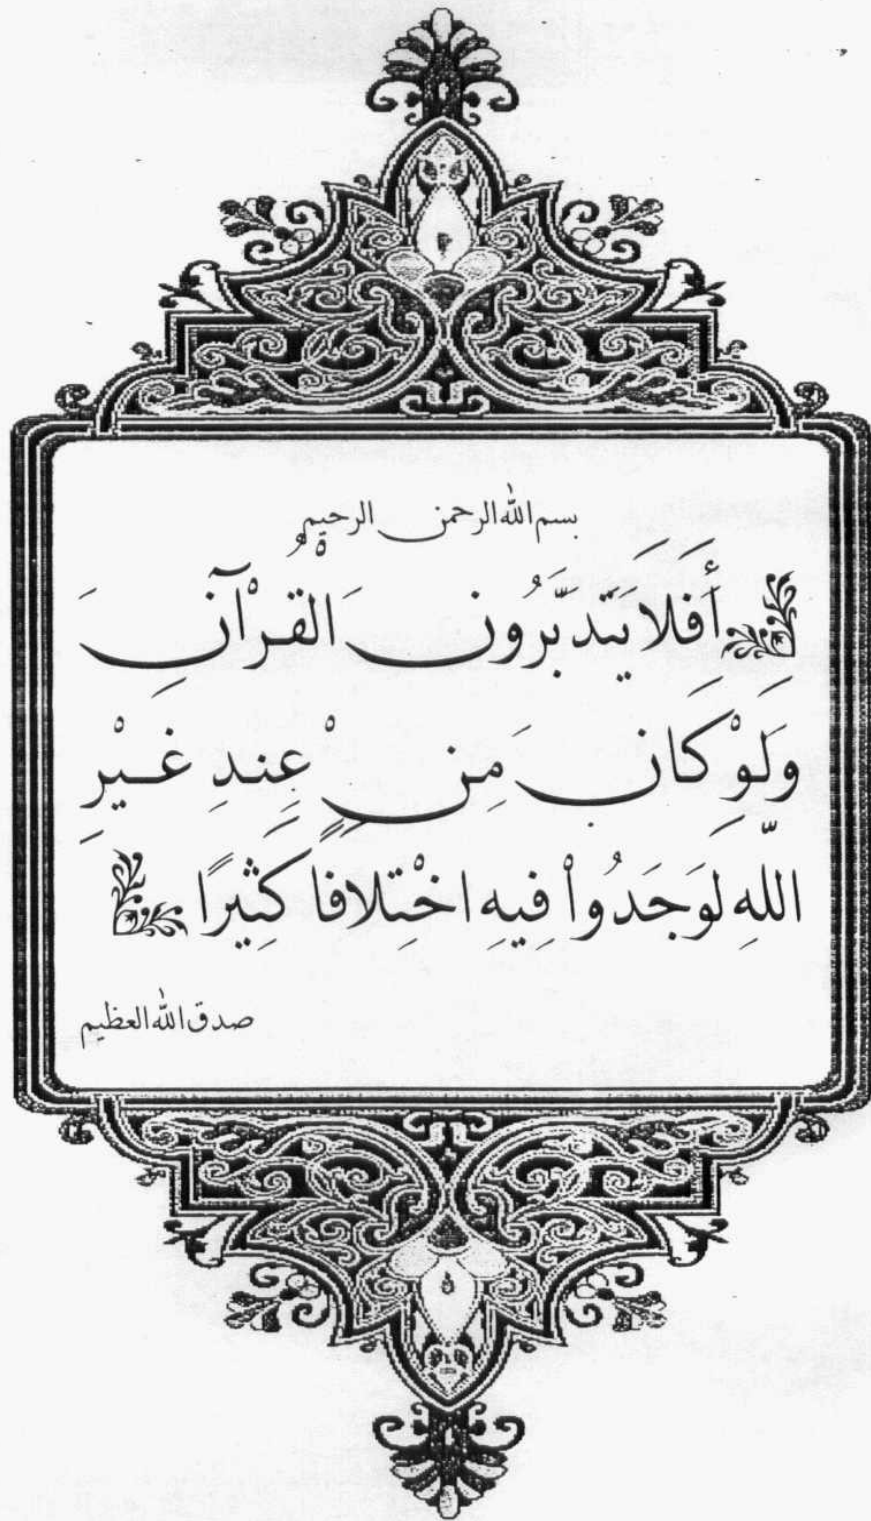 بسم الله الرحمن الرحيم
أَفَلَا يَتَدَبَّرُونَ الْقُرْآنَ
وَلَوْ كَانَ مِنْ عِندِ غَيْرِ
اللّهِ لَوَجَدُواْ فِيهِ اخْتِلافًا كَثِيرًا
صدق الله العظيم